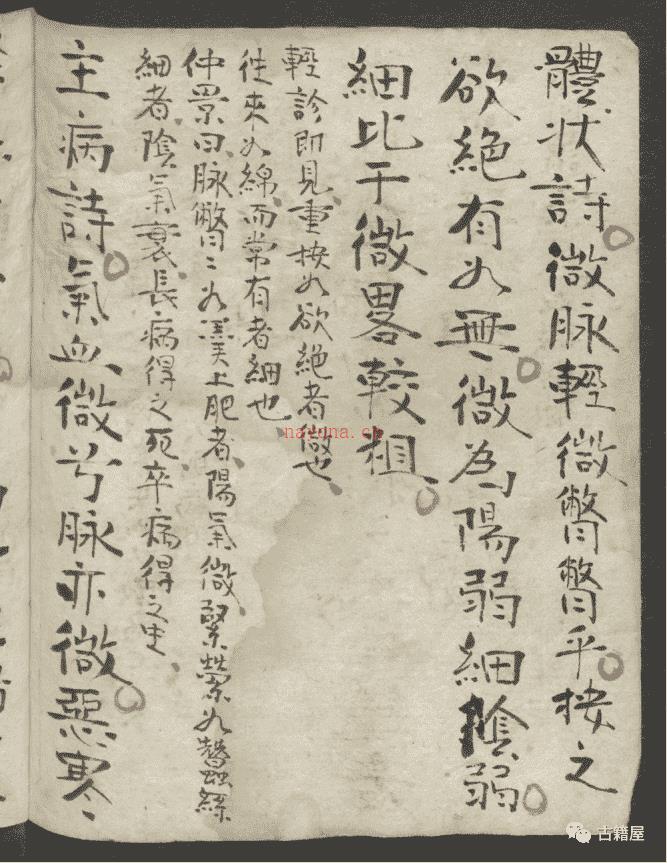 體状詩微脉輕微瞥瞥乎按之
欲絕有如無微為陽弱細陰弱
細比于微畧較粗
輕診即見重按如欲絕者微也
徃來如綿而常有者細也
仲景曰脉瞥〻如羮上肥者陽氣微縈縈如蠶絲
細者陰氣衰長病得之死卒病得之生
主病詩氣血微兮脉亦微惡寒
nayona.cn
古籍屋